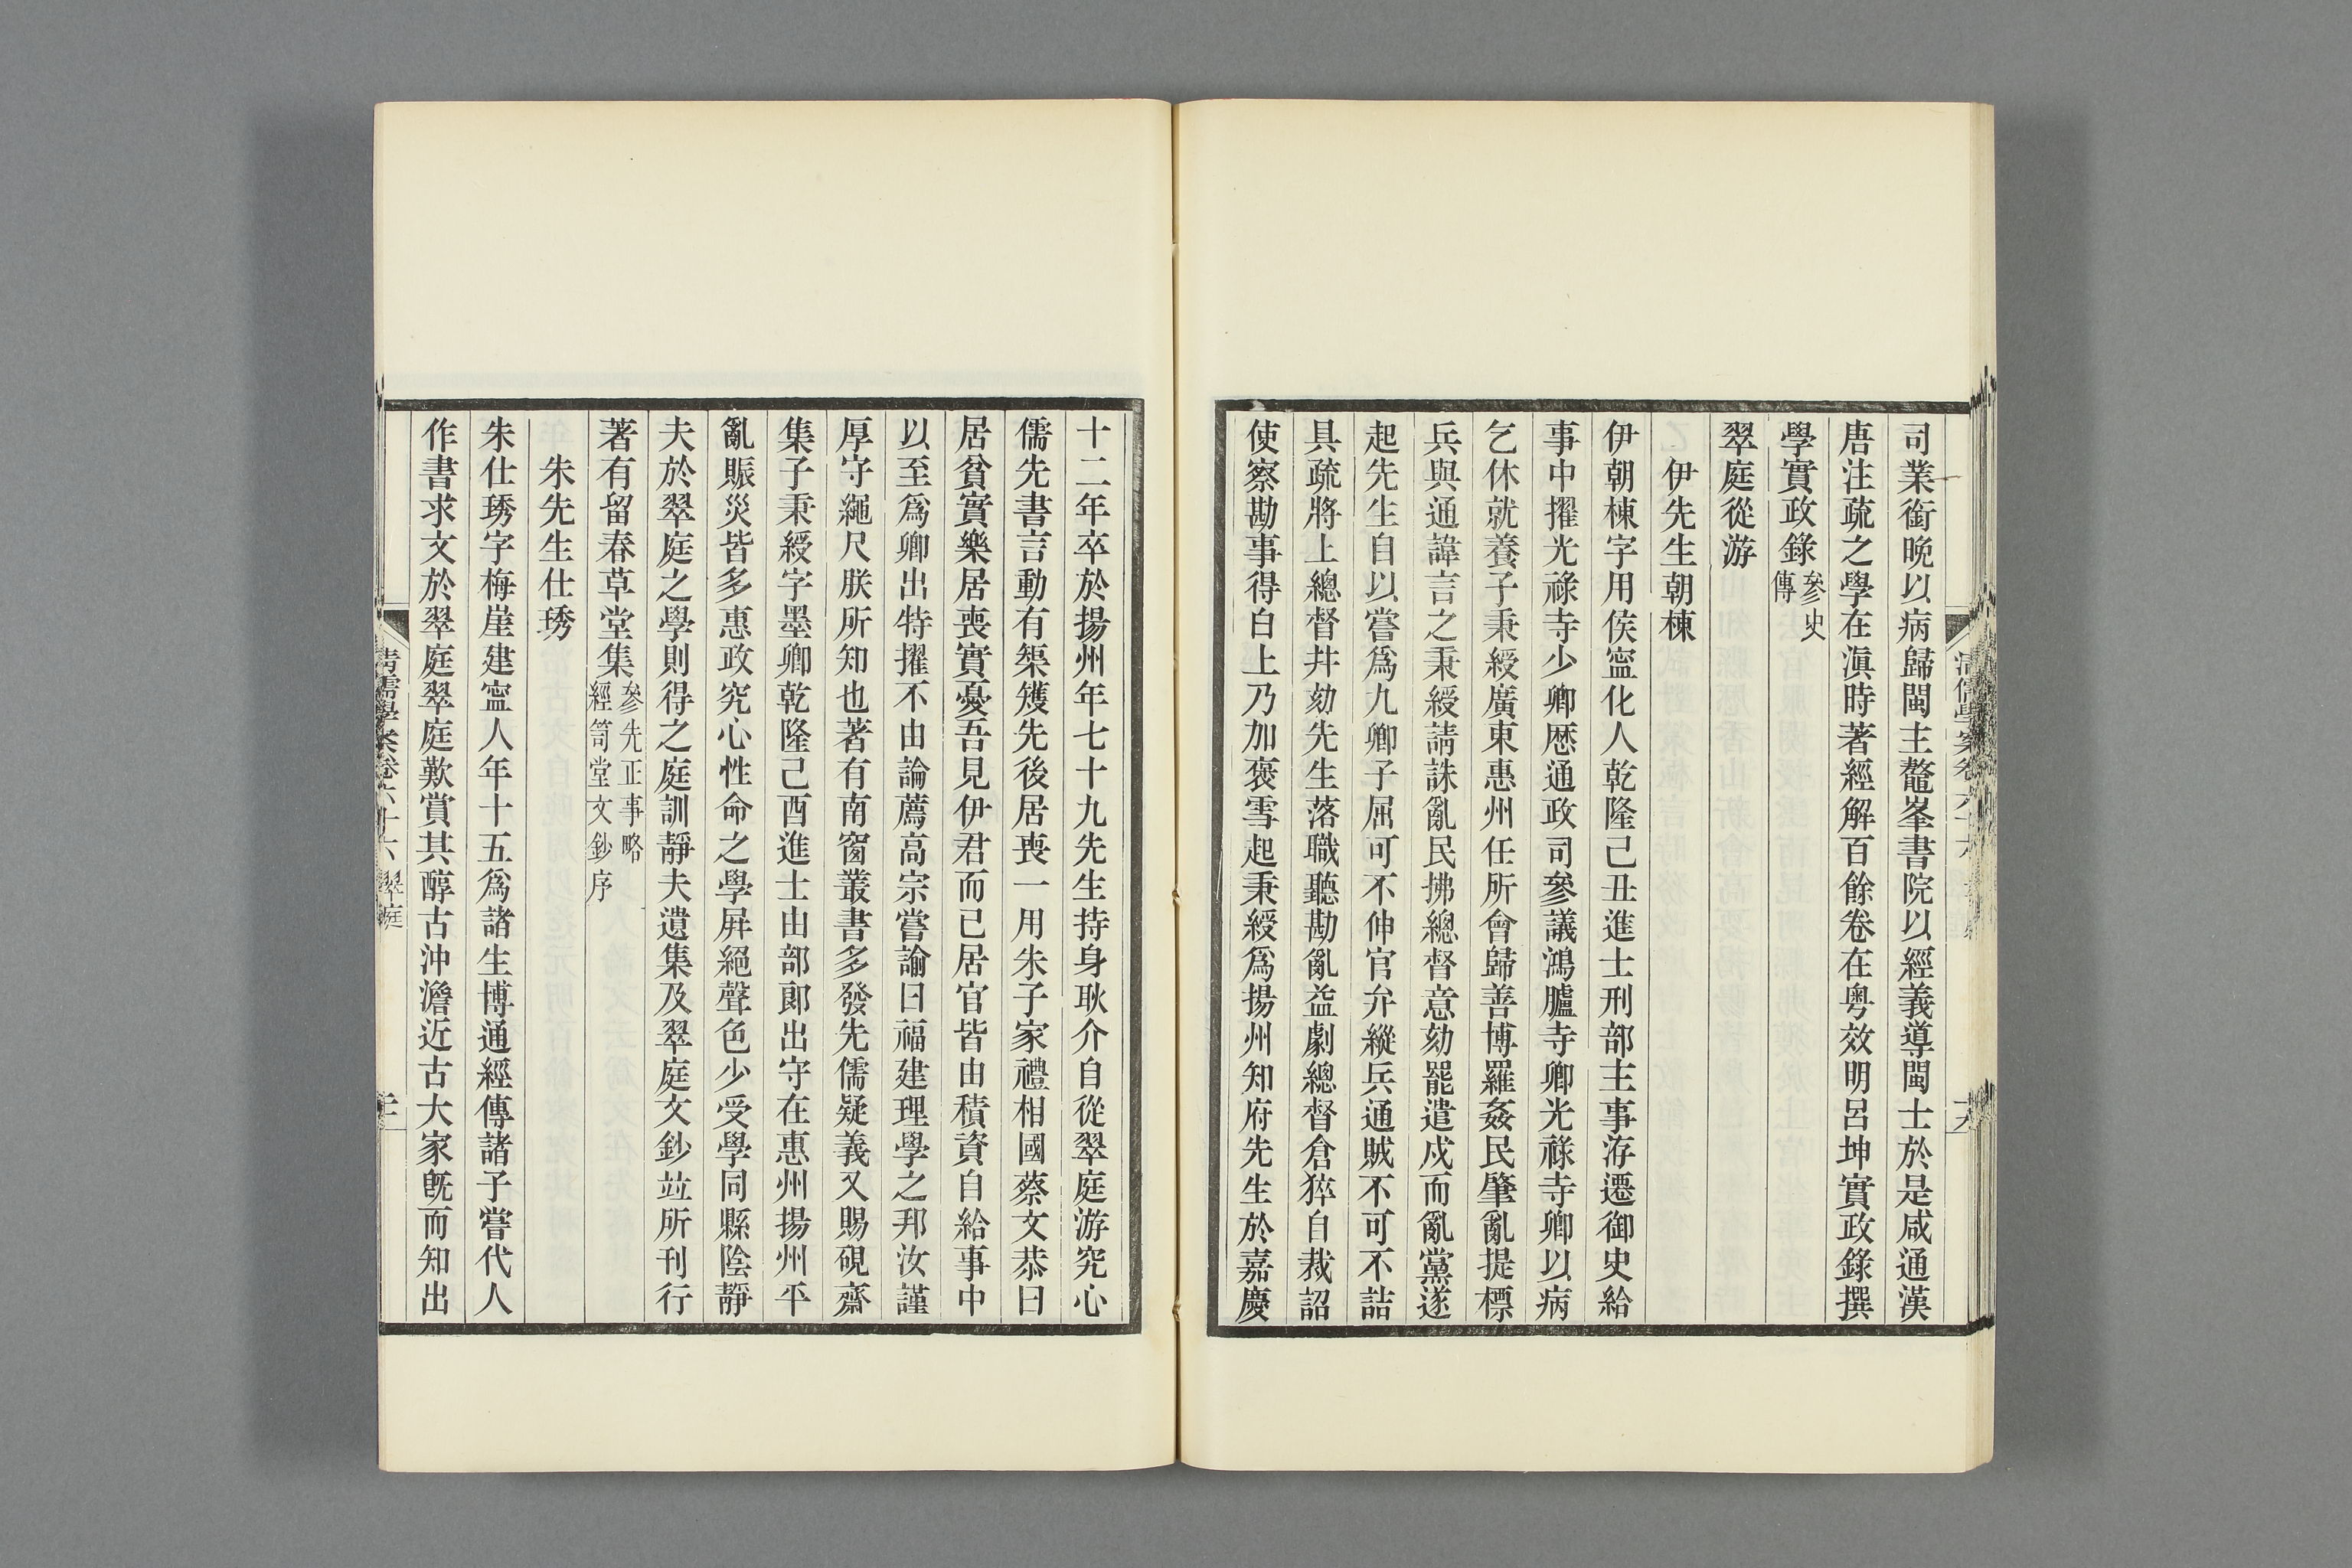 司業銜晚以病歸閩主鼇峯書院以經義導閩士於是咸通漢
唐注疏之學在滇時著經解百餘卷在粵效明呂坤實政錄撰
學實政錄參史傳
翠庭從游
伊先生朝棟
伊朝棟字用侯寍化人乾隆己丑進士刑部主事洊遷御史給
事中擢光祿寺少卿厯通政司參議鴻臚寺卿光祿寺卿以病
乞休就養子秉綬廣東惠州任所會歸善博羅姦民肇亂提標
兵與通諱言之秉綬請誅亂民拂總督意劾罷遣戍而亂黨遂
起先生自以嘗爲九卿子屈可不伸官弁縱兵通賊不可不詰
具疏將上總督幷劾先生落職聽勘亂益劇總督倉猝自裁詔
使察勘事得白上乃加褒雪起秉綬爲揚州知府先生於嘉慶
十二年卒於揚州年七十九先生持身耿介自從翠庭游究心
儒先書言動有榘矱先後居喪一用朱子家禮相國蔡文恭曰
居貧實樂居喪實憂吾見伊君而已居官皆由積資自給事中
以至爲卿出特擢不由論薦高宗嘗諭曰福建理學之邦汝謹
厚守繩尺朕所知也著有南窗叢書多發先儒疑義又賜硯齋
集子秉綬字墨卿乾隆己酉進士由部郎出守在惠州揚州平
亂賑災皆多惠政究心性命之學屛絕聲色少受學同縣陰靜
夫於翠庭之學則得之庭訓靜夫遺集及翠庭文鈔竝所刊行
著有留春草堂集參先正事略經笥堂文鈔序
朱先生仕琇
朱仕琇字梅崖建寍人年十五爲諸生博通經傳諸子嘗代人
作書求文於翠庭翠庭歎賞其醇古沖澹近古大家旣而知出
清儒學案卷六十六 翠庭